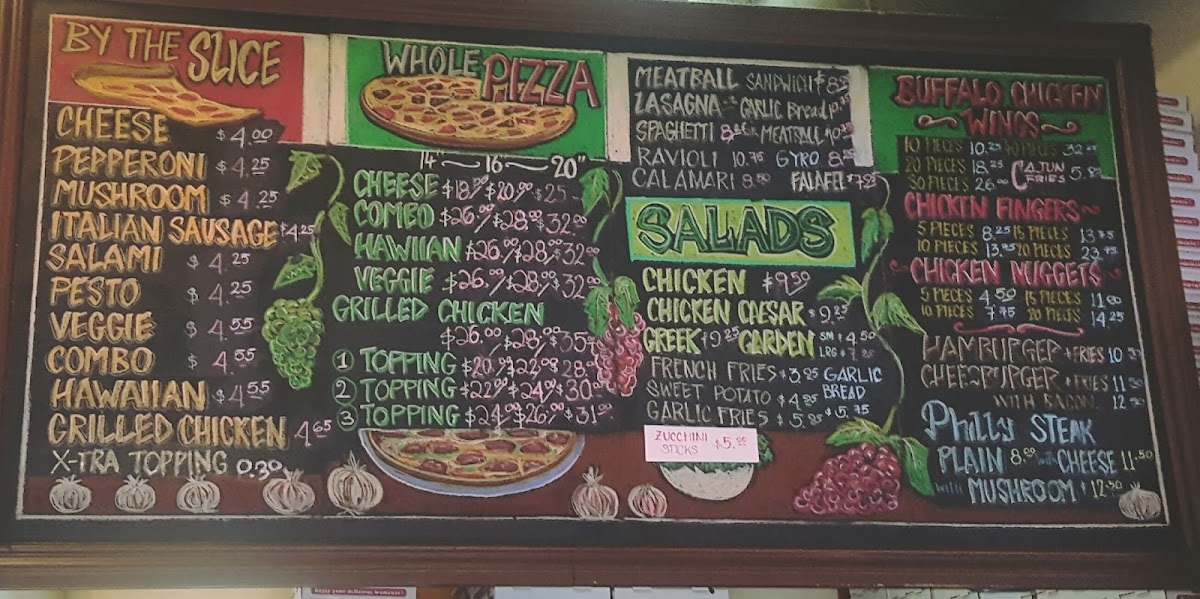 BY THE SLICE
CHEESE $4.00
PEPPERONI $4.25
MUSHROOM $4.25
ITALIAN SAUSAGE $4.25
SALAMI $4.25
PESTO $4.25
VEGGIE $4.55
COMBO $4.55
HAWAIIAN $4.55
GRILLED CHICKEN 4.65
X-TRA TOPPING 0.30
WHOLE PIZZA
14" 16 20"
CHEESE $18.50 $20.90 $25
COMBO $26.00 $28.00 $32.00
HAWIIAN $26.00 $28.00 $32.00
VEGGIE $26.00 $28.00 $32.00
GRILLED CHICKEN
$26.00 $28.00 $35
1 TOPPING $20.90 $22.00 $28.00
2 TOPPING $22.00 $24.00 $30.00
3 TOPPING $24.00 $26.00 $31.00
MEATBALL SANDWICH
LASAGNA GARLIC Bread
SPAGHETTI MEATBALL
RAVIOLI 10.75 GYRO
CALAMARI FALAFEL $7.25
SALADS
CHICKEN $9.50
CHICKEN CAESAR $9.25
GREEK $9.25 GARDEN SM $4.50
LRG
FRENCH FRIES $3.95 GARLIC
SWEET POTATO $4.85 BREAD
GARLIC FRIES $5.25 $5.75
ZUCCHINI
STICKS $5.25
BUFFALO CHICKEN
WINGS
10 PIECES 10.25 PIECES 32
20 PIECES 18.25 CAJUN
30 PIECES 26.00 FRIES
CHICKEN FINGERS
5 PIECES 8.25 15 PIECES 13.75
10 PIECES 20 PIECES 23.75
CHICKEN NUGGETS
5 PIECES 4.50 15 PIECES 11.00
10 PIECES 7.75 20 PIECES 14.25
HAMBURGER + FRIES
CHEESBURGER + FRIES
WITH BACON
Philly STEAK
PLAIN with CHEESE 11.50
with MUSHROOM $12.50